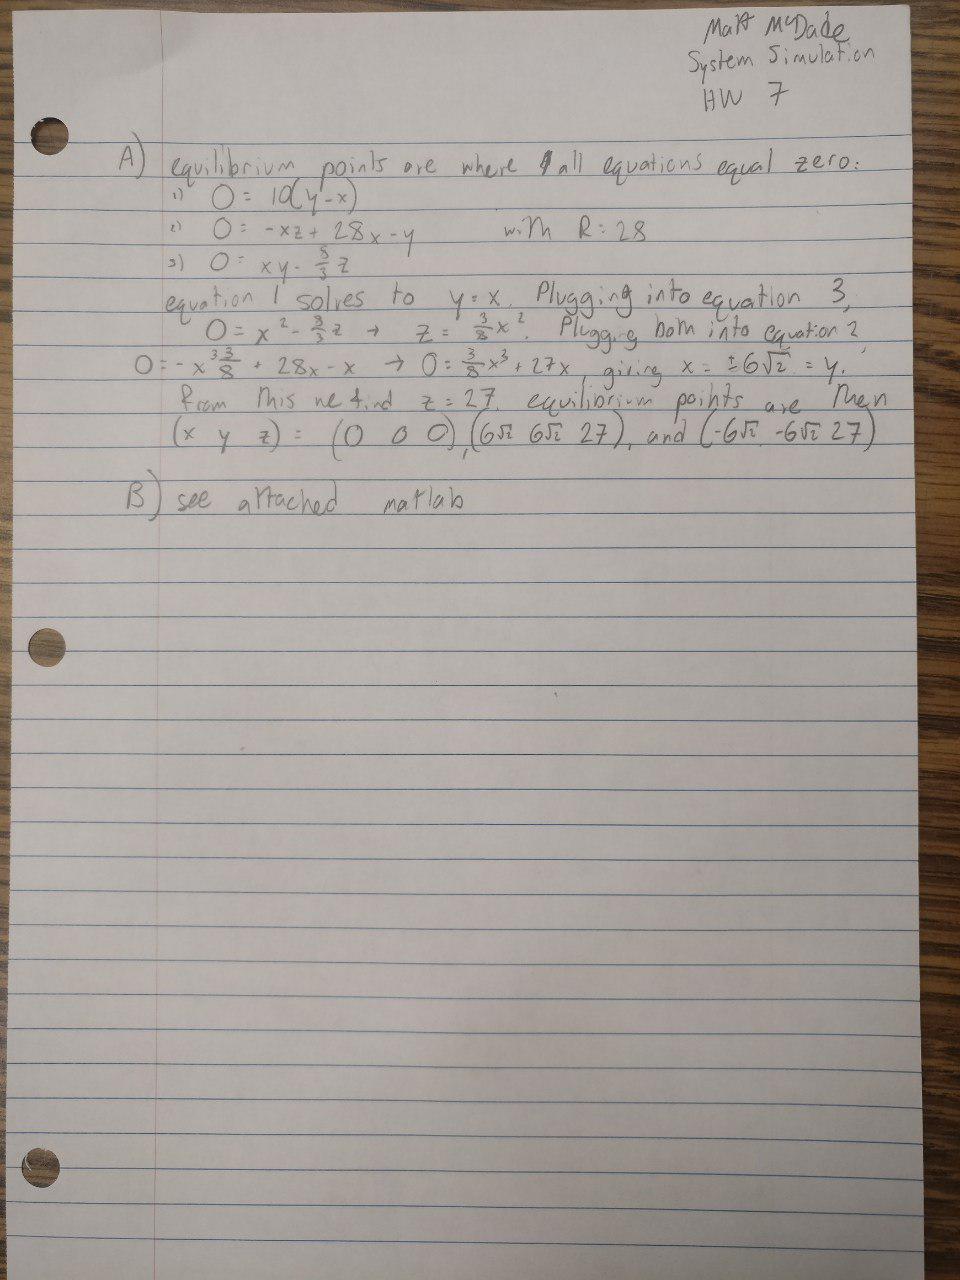 Matt McDade
System Simulation
HW 7
A) equilibrium points are where all equations equal zero:
1) 0 = 10(y-x)
2) 0 = -xz + 28x - y with R = 28
3) 0 = xy - 8/3 z
equation 1 solves to y = x. Plugging into equation 3,
0 = x² - 8/3 z → z = 3/8 x². Plugging both into equation 2,
0 = -x³ 3/8 + 28x - x → 0 = 3/8 x³ + 27x, giving x = ±6√2 = y.
From this we find z = 27. equilibrium points are then
(x y z) = (0 0 0), (6√2 6√2 27), and (-6√2 -6√2 27)
B) see attached matlab